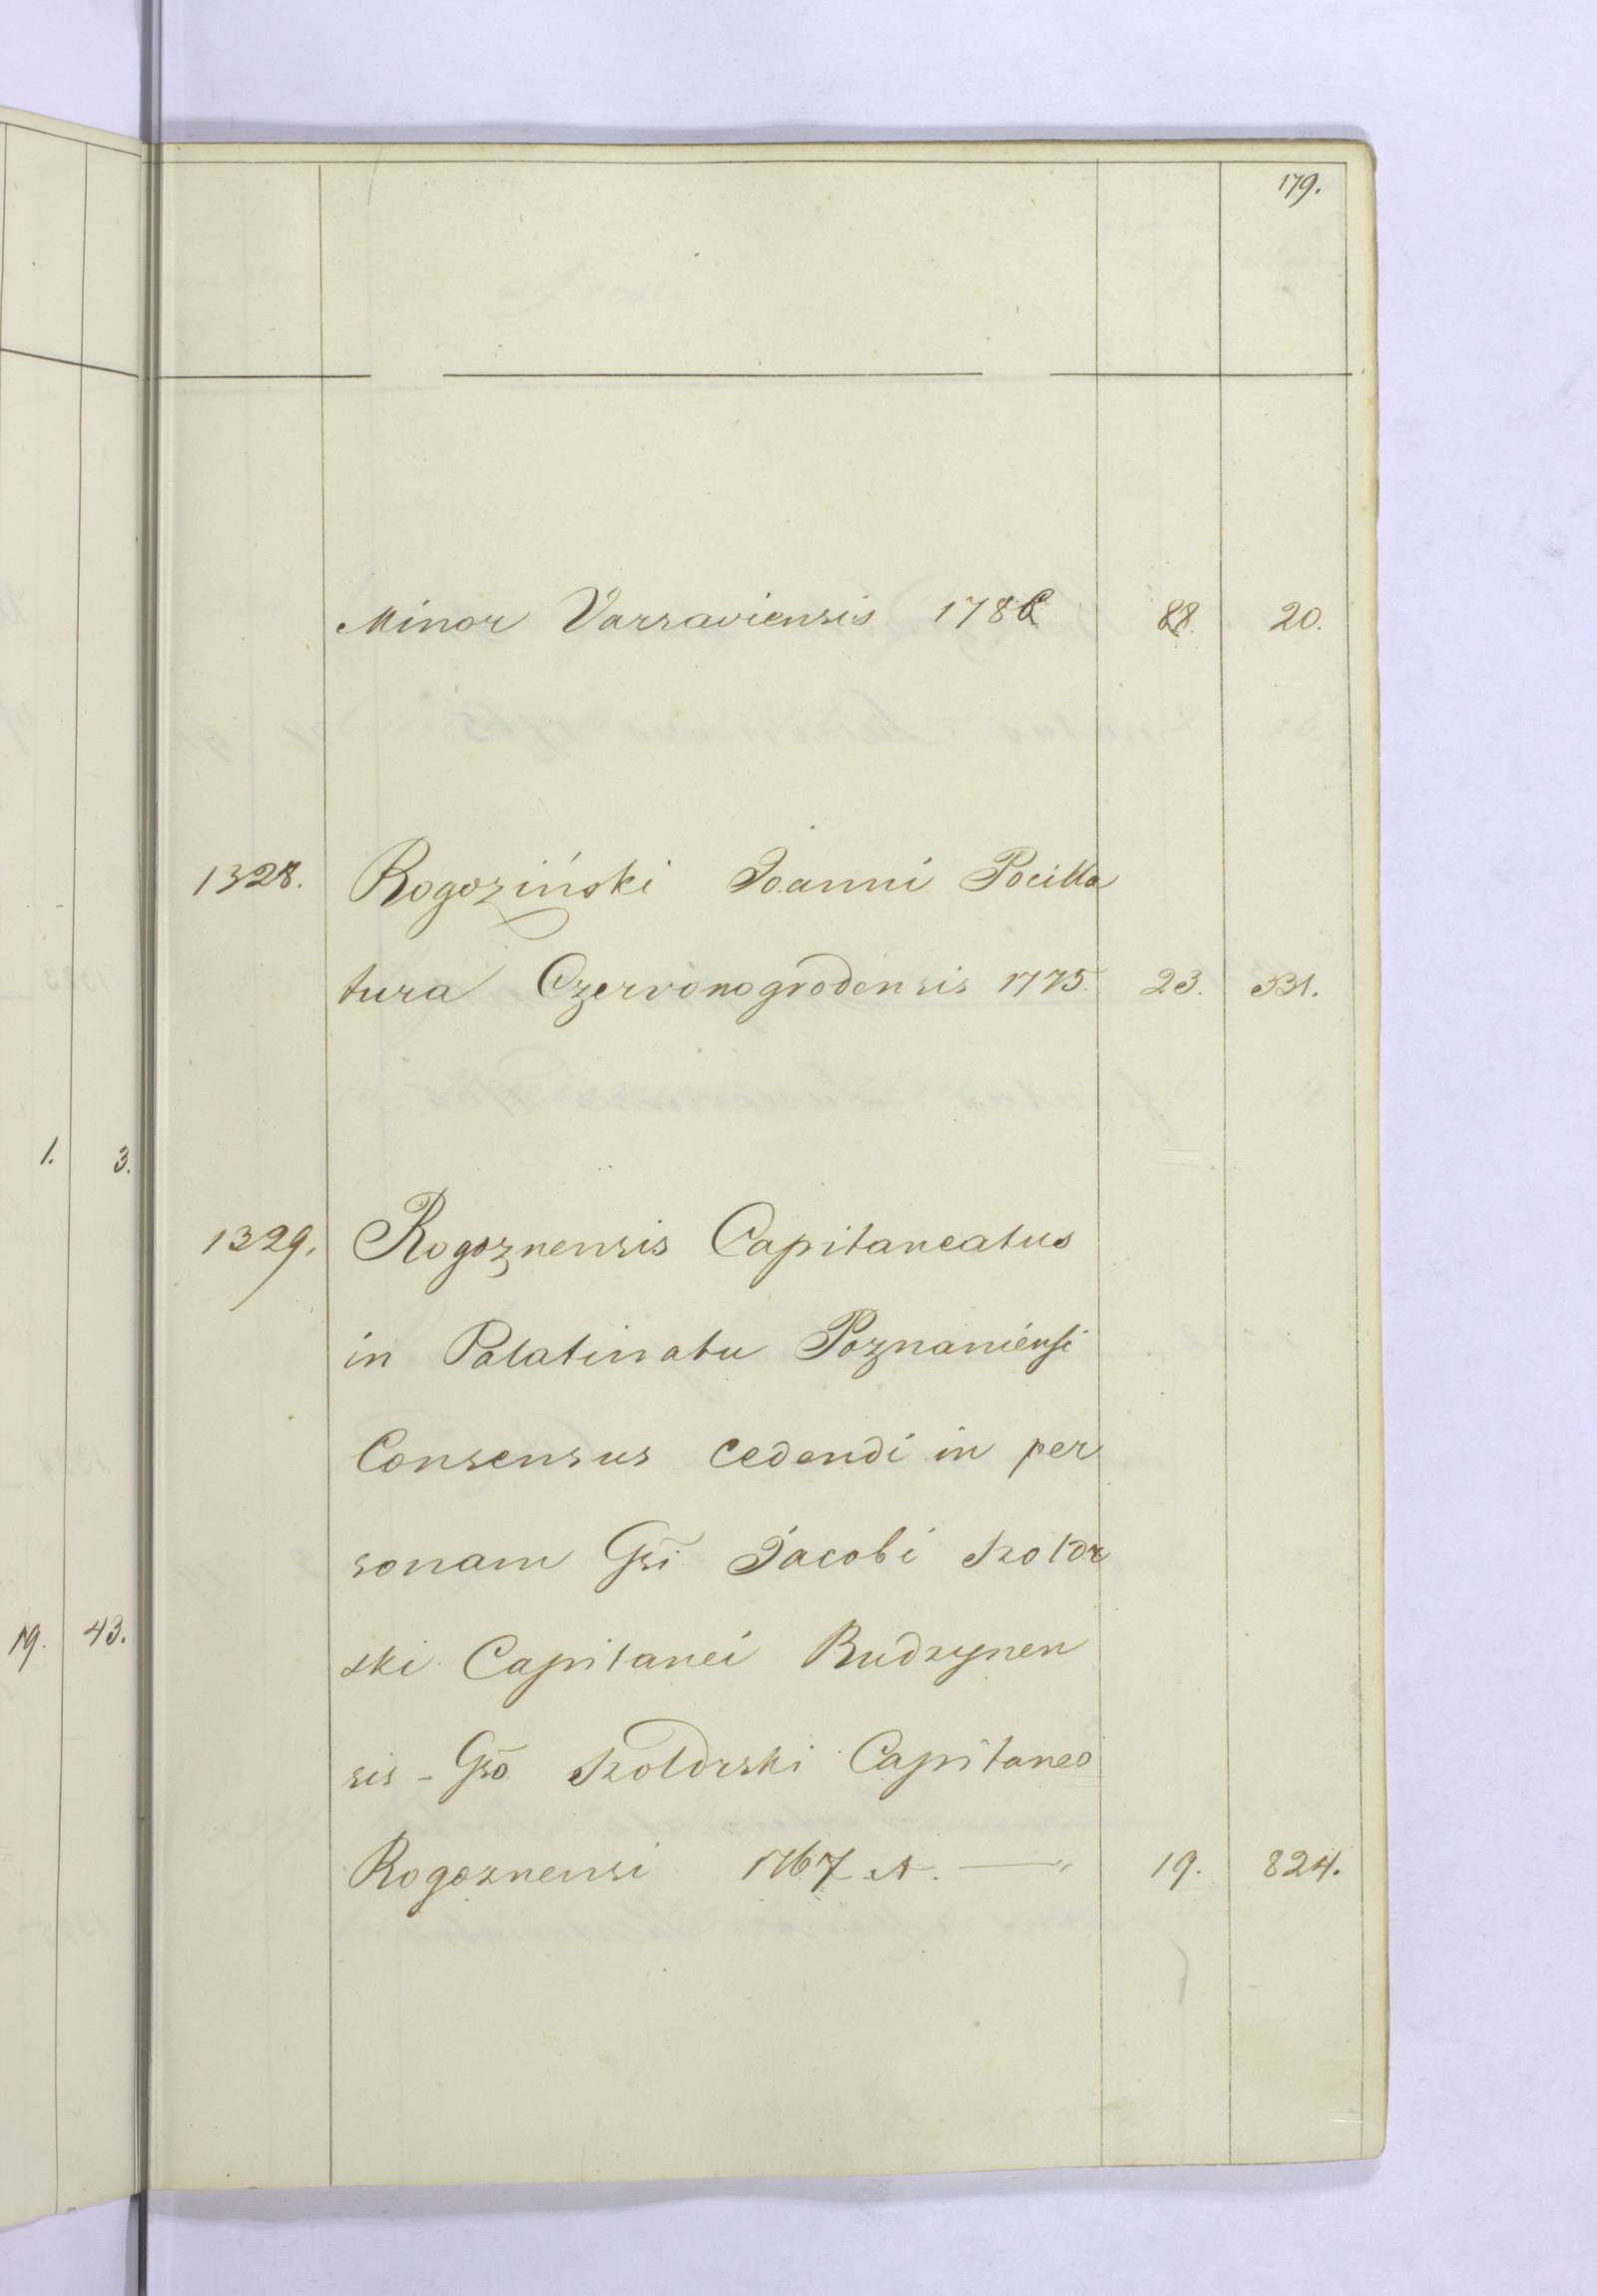 179.
Minor Varsaviensis 1786 88. 20.
1328. Rogoziński Joanni Pocilla
tura Czervonogrodensis 1775. 23. 331.
1. 3.
1329. Rogoznensis Capitaneatus
in Palatinatu Poznaniensi
Consensus cedendi in per
sonam Gsi Jacobi Szoldr
19. 43.
ski Capitanei Budzynen
sis - Gso Szoldrski Capitaneo
Rogoznensi 1767 A. — " 19. 824.